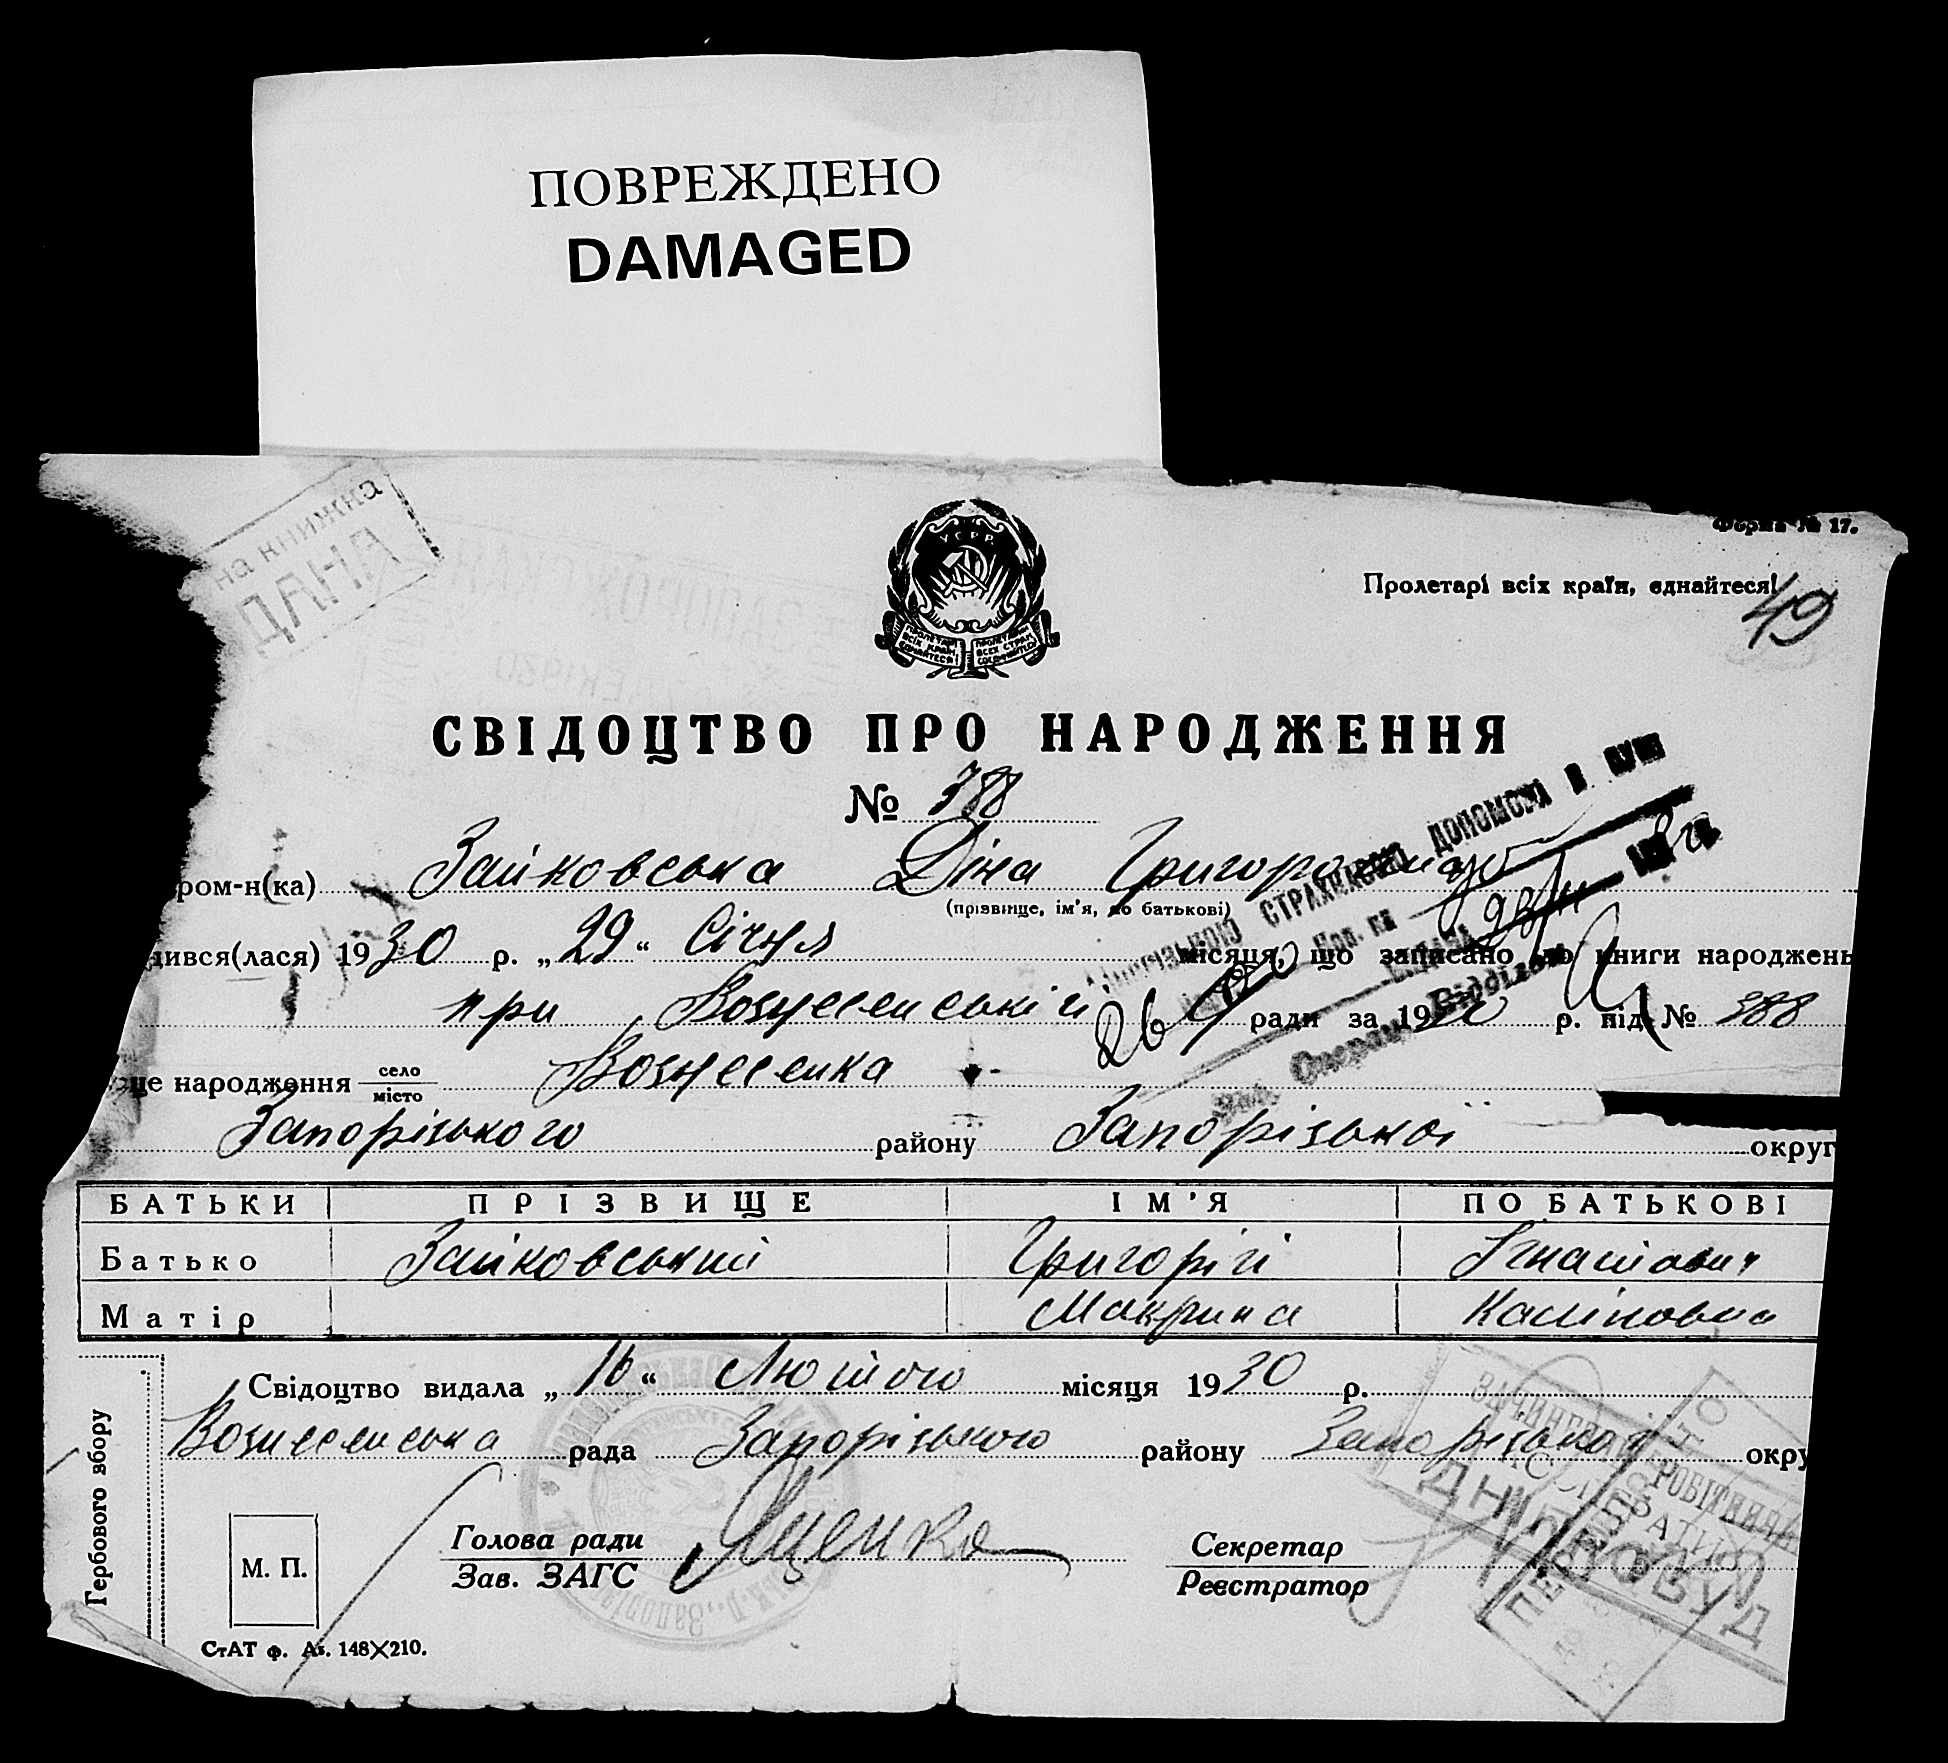 ПОВРЕЖДЕНО
DAMAGED
на книжна
ДАНА
Форма № 17.
Пролетарі всіх країн, єднайтеся!
49
У С Р Р
СВІДОЦТВО ПРО НАРОДЖЕННЯ
№ 388
ром-н(ка) Зайковська Діна
(прізвище, ім'я, по батькові)
дився(лася) 1930 р. „29“ Січня місяця, що записано до книги народжень
при Вознесенській ради за 1930 р. під № 388
це народження село місто Вознесенка
Запорізького району Запорізької округ
БАТЬКИ ПРІЗВИЩЕ ІМ'Я ПО БАТЬКОВІ
Батько Зайковський Григорій Ігнатович
Матір Макрина
СТРАХКАСОЮ ДОПОМОГА В СУМІ
Свідоцтво видала „16“ Лютого місяця 1930 р.
Вознесенська рада Запорізького району Запорізької окру
Гербового збору
М. П.
Голова ради
Зав. ЗАГС
Яценко
Секретар
Реєстратор
СтАТ ф. А5. 148×210.